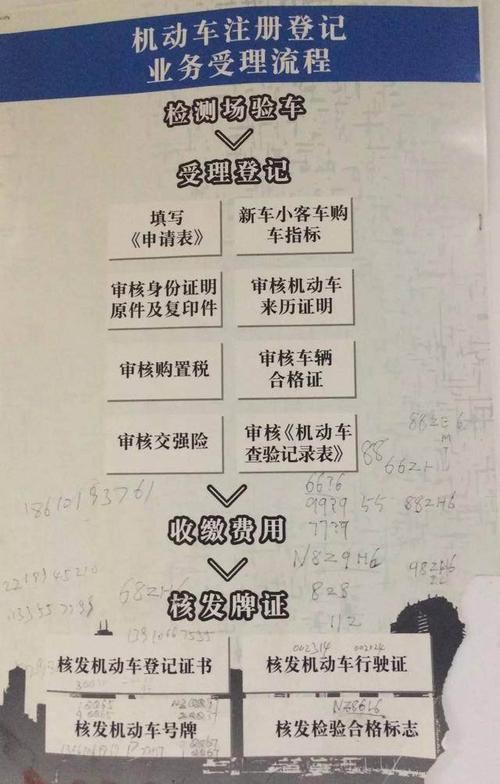 机动车注册登记
业务受理流程
检测场验车
受理登记
填写
《申请表》
新车小客车购
车指标
审核身份证明
原件及复印件
审核机动车
来历证明
审核购置税
审核车辆
合格证
审核交强险
审核《机动车
查验记录表》
88
662H
6676
9979
55
882H6
7779
18610193761
收缴费用
N8Z9H6
828
682H6
112
核发牌证
核发机动车登记证书
核发机动车行驶证
核发机动车号牌
核发检验合格标志